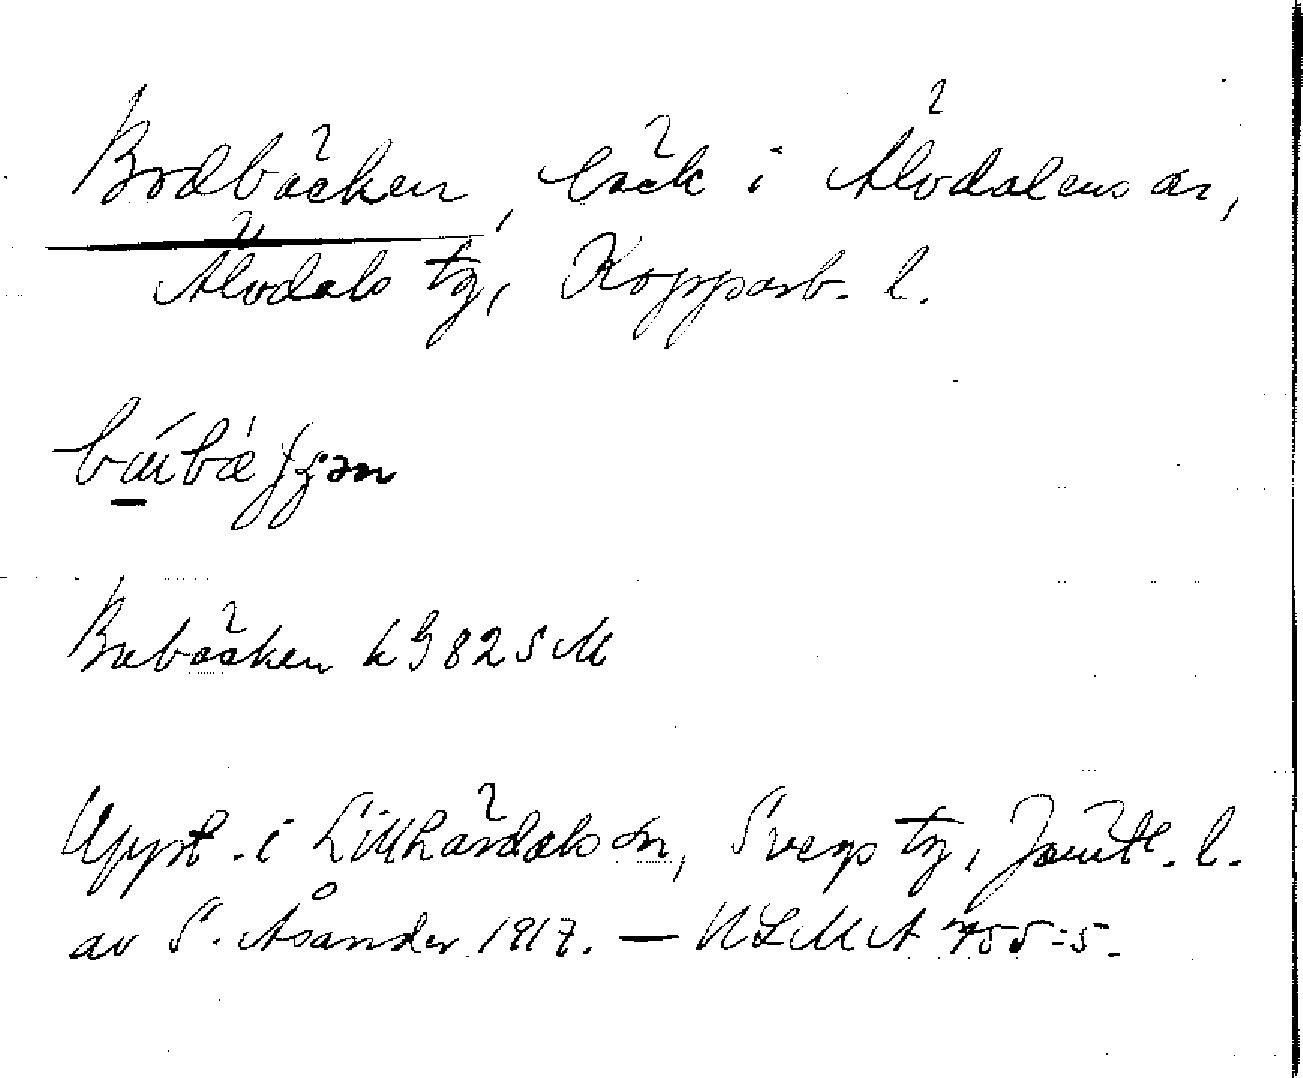 Bodbäcken, bäck i Älvdalens sn,
Älvdals tg, Kopparb. l.
Bubäcken kG 82 SM
Uppt. i Lillhärdals sn, Svegs tg, Jämtl. l.
av S. Åsander 1917. — ULMA 755:5.